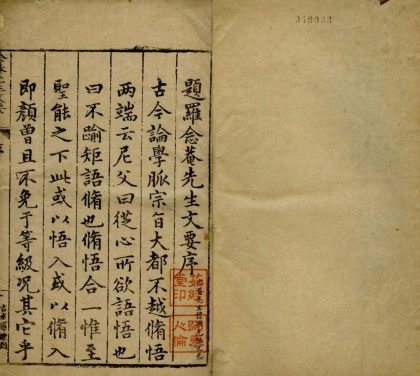 題羅念菴先生文要序
古今論學脈宗旨大都不越脩悟
兩端云尼父曰從心所欲語悟也
曰不踰矩語脩也脩悟合一惟至
聖能之下此或以悟入或以脩入
即顏曾且不免于等級況其它乎